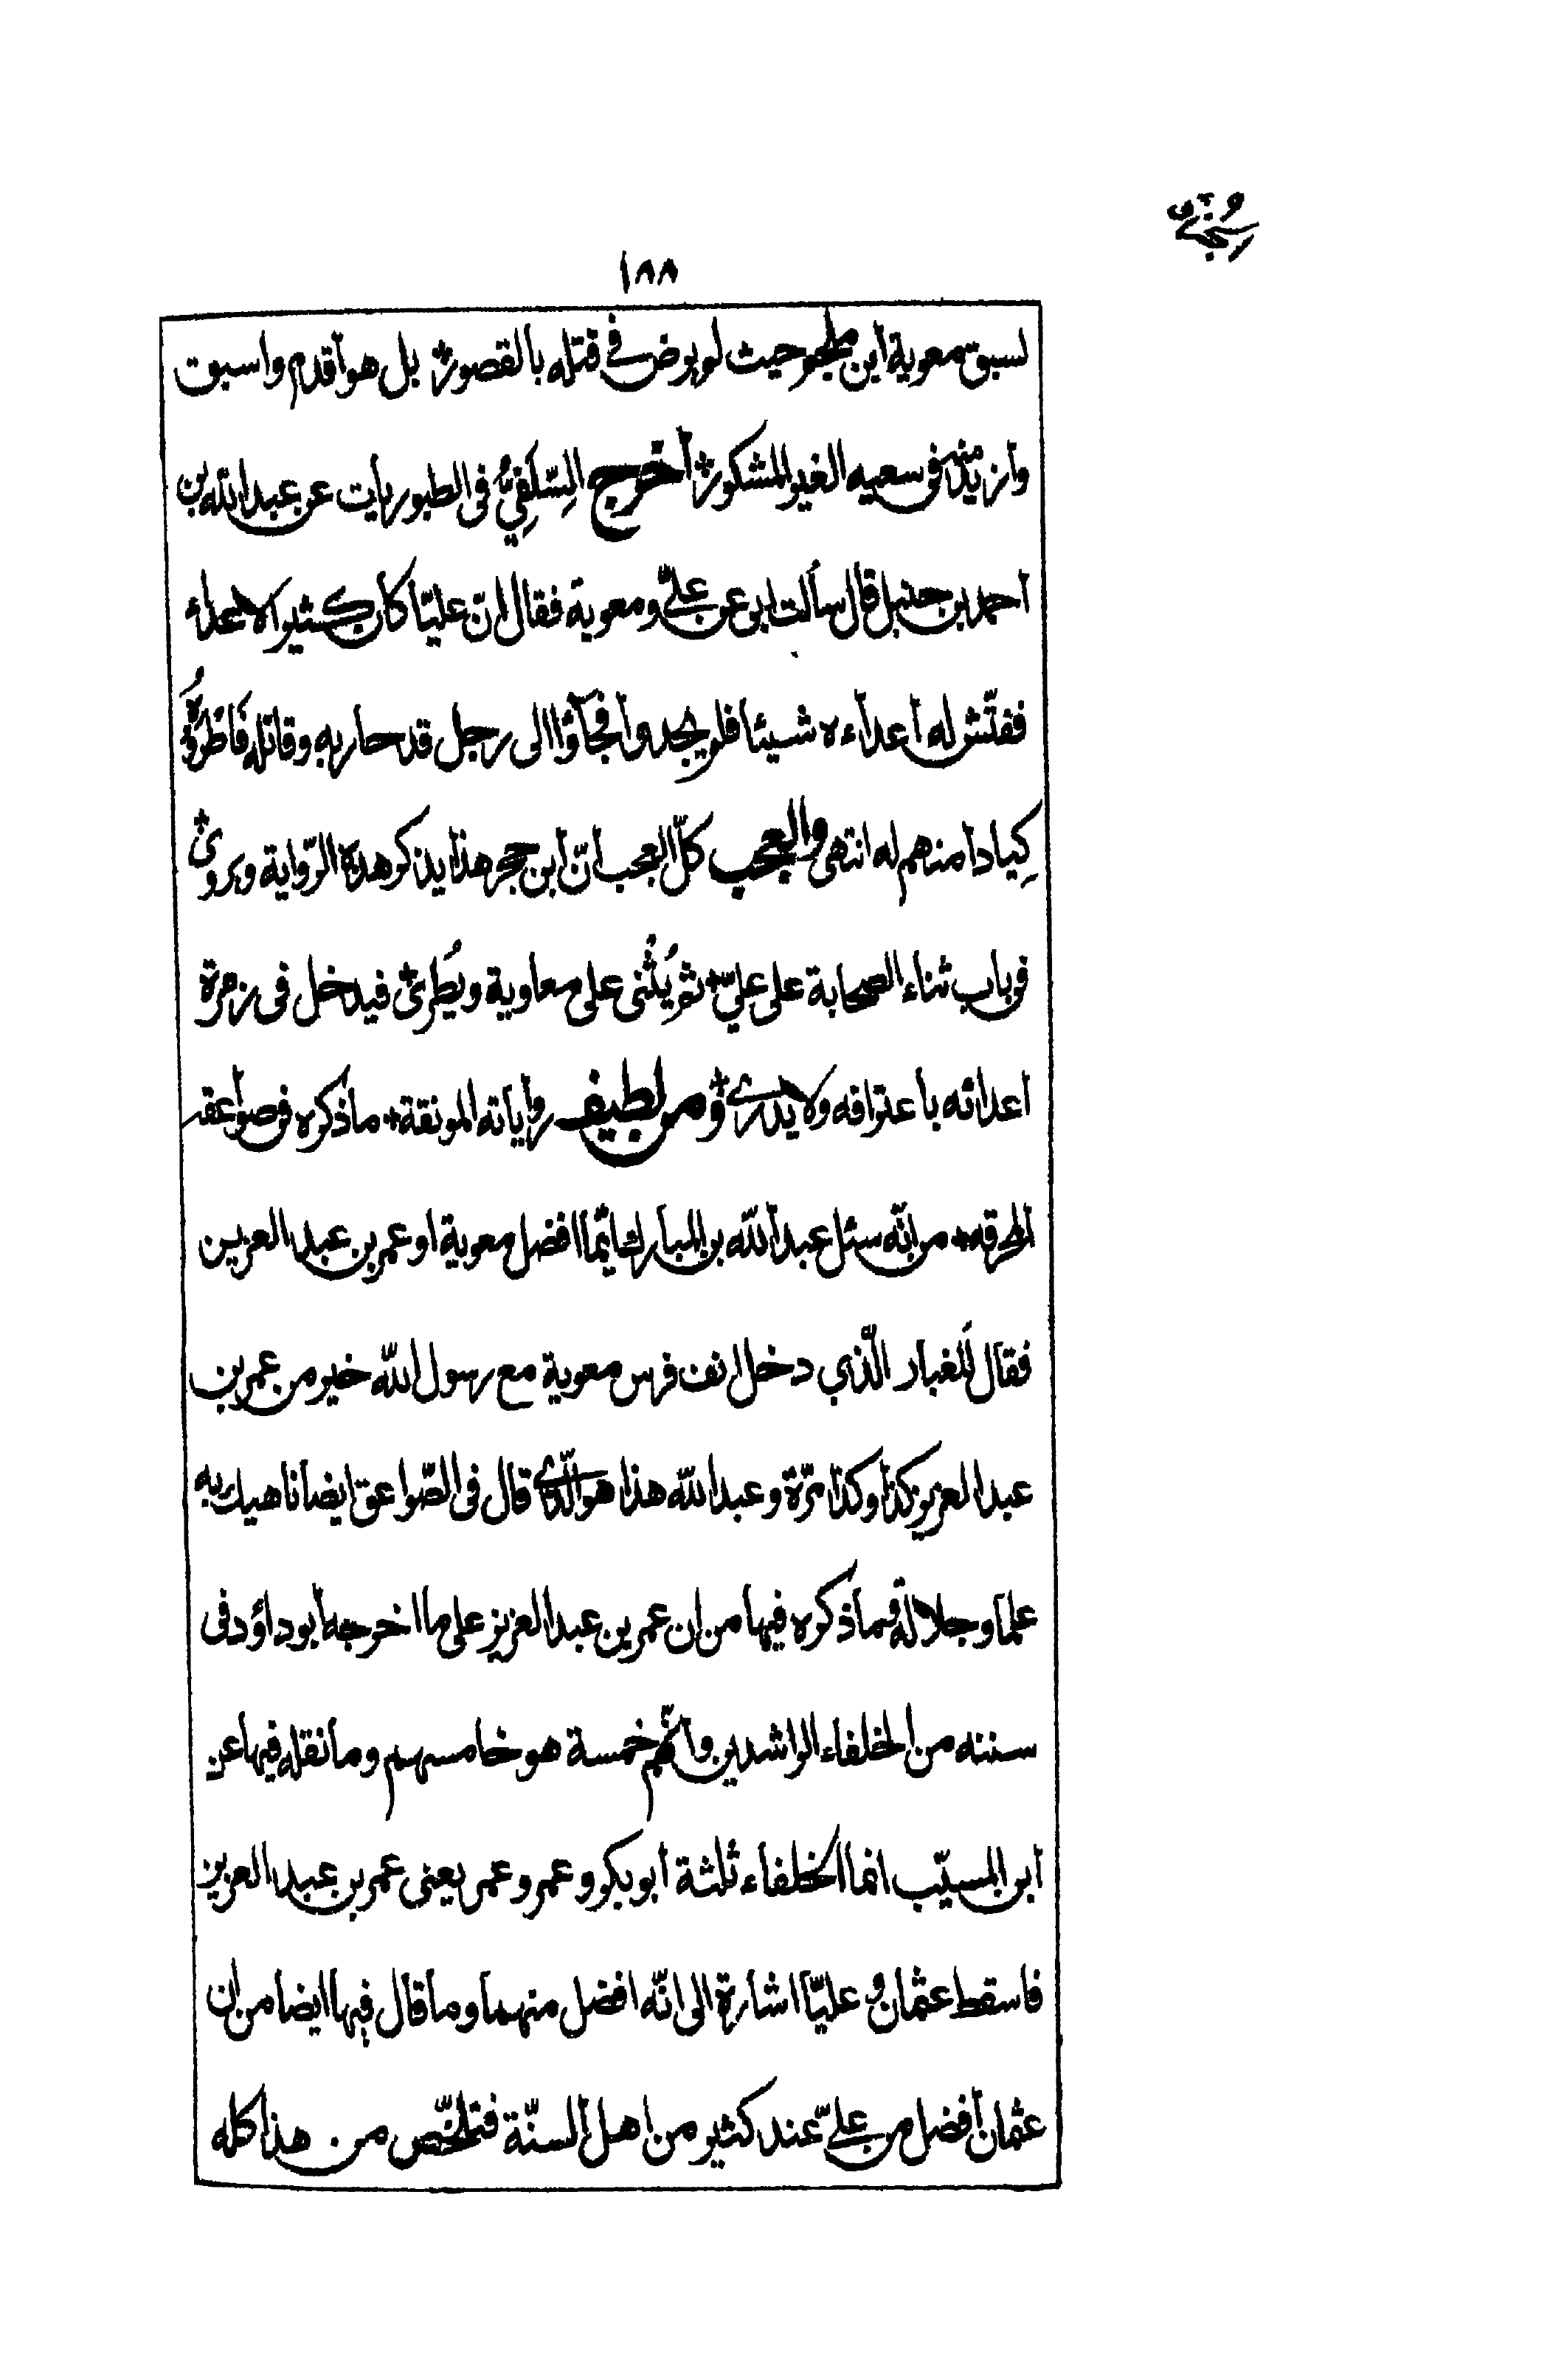 ١٨٨
لسبق معوية ابن ملجم حيث لم يرض في قتله بالقصور؞ بل هو أقدم واسبق
وازيد منه في سعيه الغير المشكور؞ أخرج السِّلَفِيُّ فى الطيوريات عن عبد الله بن
احمد بن حنبل قال سألت ابى عن عليّ ومعوية فقال انّ عليّا كان كثير الاعداء
ففتّش له أعداءه شيئا فلم يجدوا فجآؤا الى رجل قد حاربه وقاتله فَاَطْرَوْهُ
كِيادا منهم له انتهى والعجب كلّ العجب أنّ ابن حجر هذا يذكر هذه الرّواية ويروى؞
فى باب ثناء الصحابة على عليّ؞ ثم يُثنى على معاوية ويُطرى؞ فيدخل فى زمرة
اعدائه باعترافه ولا يدرى؞ ومن لطيف رواياته المونقة؞ ما ذكره فى صواعقه
المحرقه؞ من انّه سئل عبد الله بن المبارك ايّما افضل معوية او عمر بن عبد العزيز
فقال للغبار الّذي دخل انف فرس معوية مع رسول الله خير من عمر بن
عبد العزيز كذا وكذا مرّة وعبد الله هذا هو الّذى قال فى الصّواعق ايضا ناهيك به
علما وجلالة فما ذكره فيها من ان عمر بن عبد العزيز على ما اخرجه أبو داؤد فى
سننه من الخلفاء الراشدين وانّهم خمسة هو خامسهم وما نقله فيها عن
ابن المسيّب انما الخلفاء ثلثة أبو بكر وعمر وعمر يعنى عمر بن عبد العزيز
فاسقط عثمان وعليّا اشارة الى انّه افضل منهما وما قال فيها ايضا من ان
عثمان أفضل من عليّ عند كثير من اهل السنّة فتلخّص من هذا كله